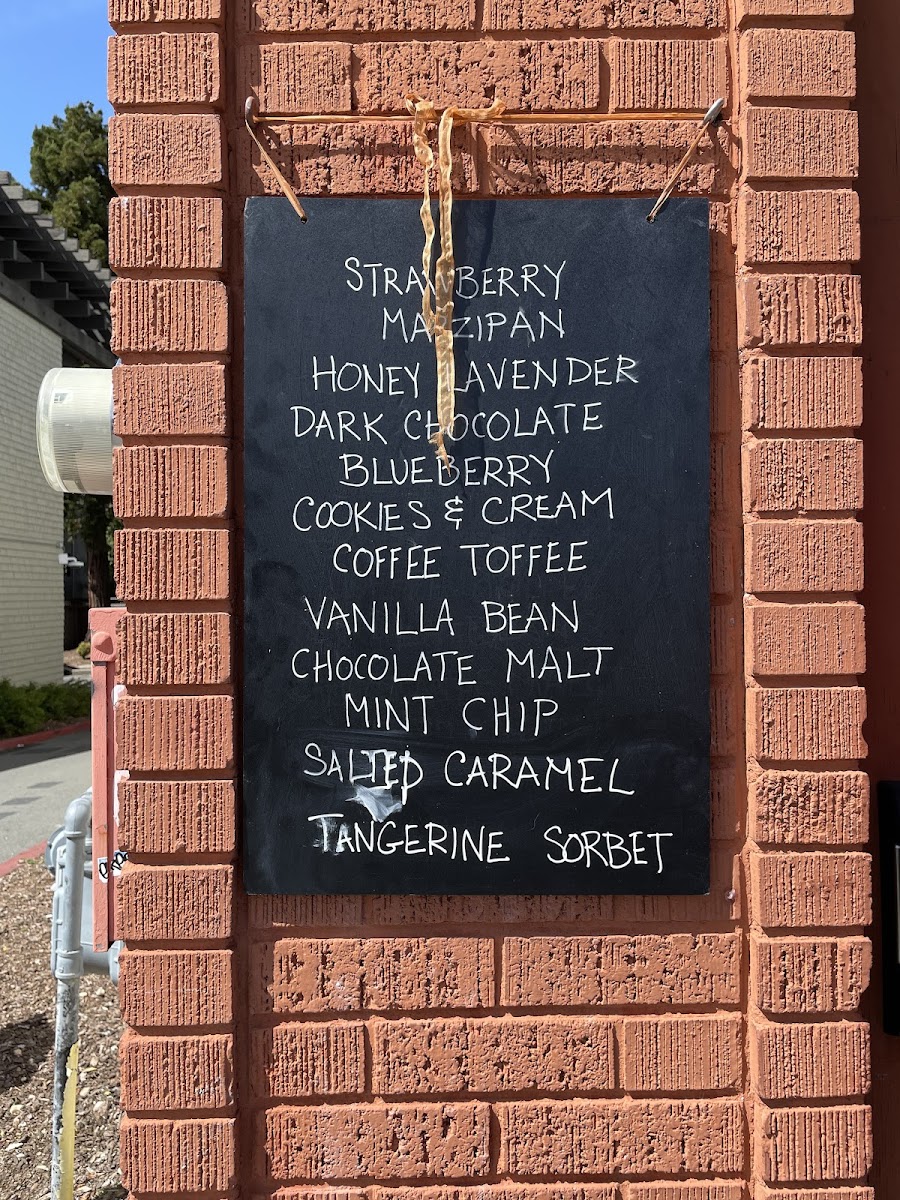 STRAWBERRY
MARZIPAN
HONEY LAVENDER
DARK CHOCOLATE
BLUEBERRY
COOKIES & CREAM
COFFEE TOFFEE
VANILLA BEAN
CHOCOLATE MALT
MINT CHIP
SALTED CARAMEL
TANGERINE SORBET